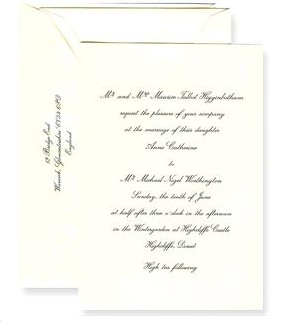 Mr. and Mrs. Maurice Talbot Higginbotham
request the pleasure of your company
at the marriage of their daughter
Anne Catherine
to
Mr. Michael Nigel Worthington
Sunday, the tenth of June
at half after three o'clock in the afternoon
in the Wintergarden at Highcliffe Castle
Highcliffe, Dorset
High tea following
England